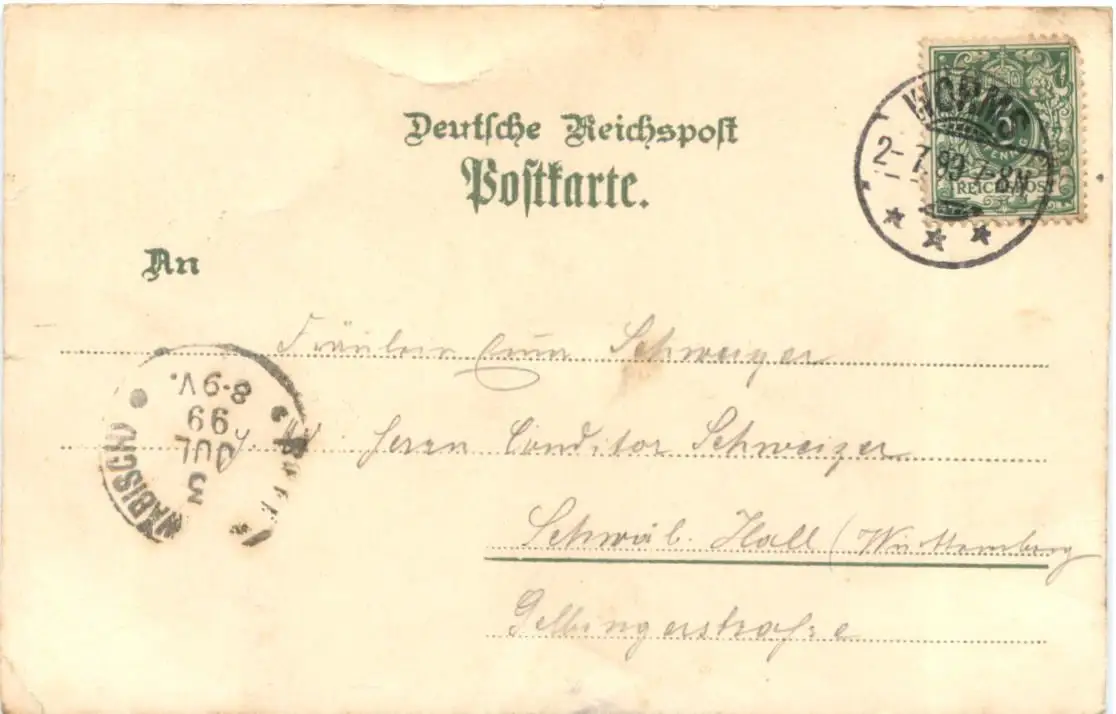 Deutsche Reichspost
Postkarte.
WORMS
2-7.99 7-8N.
REICHSPOST
An
Fräulein Emma Schweizer
Herrn Conditor Schweizer
Schwäb. Hall (Württemberg
Gelbingerstraße
8-9V.
99
JUL
3